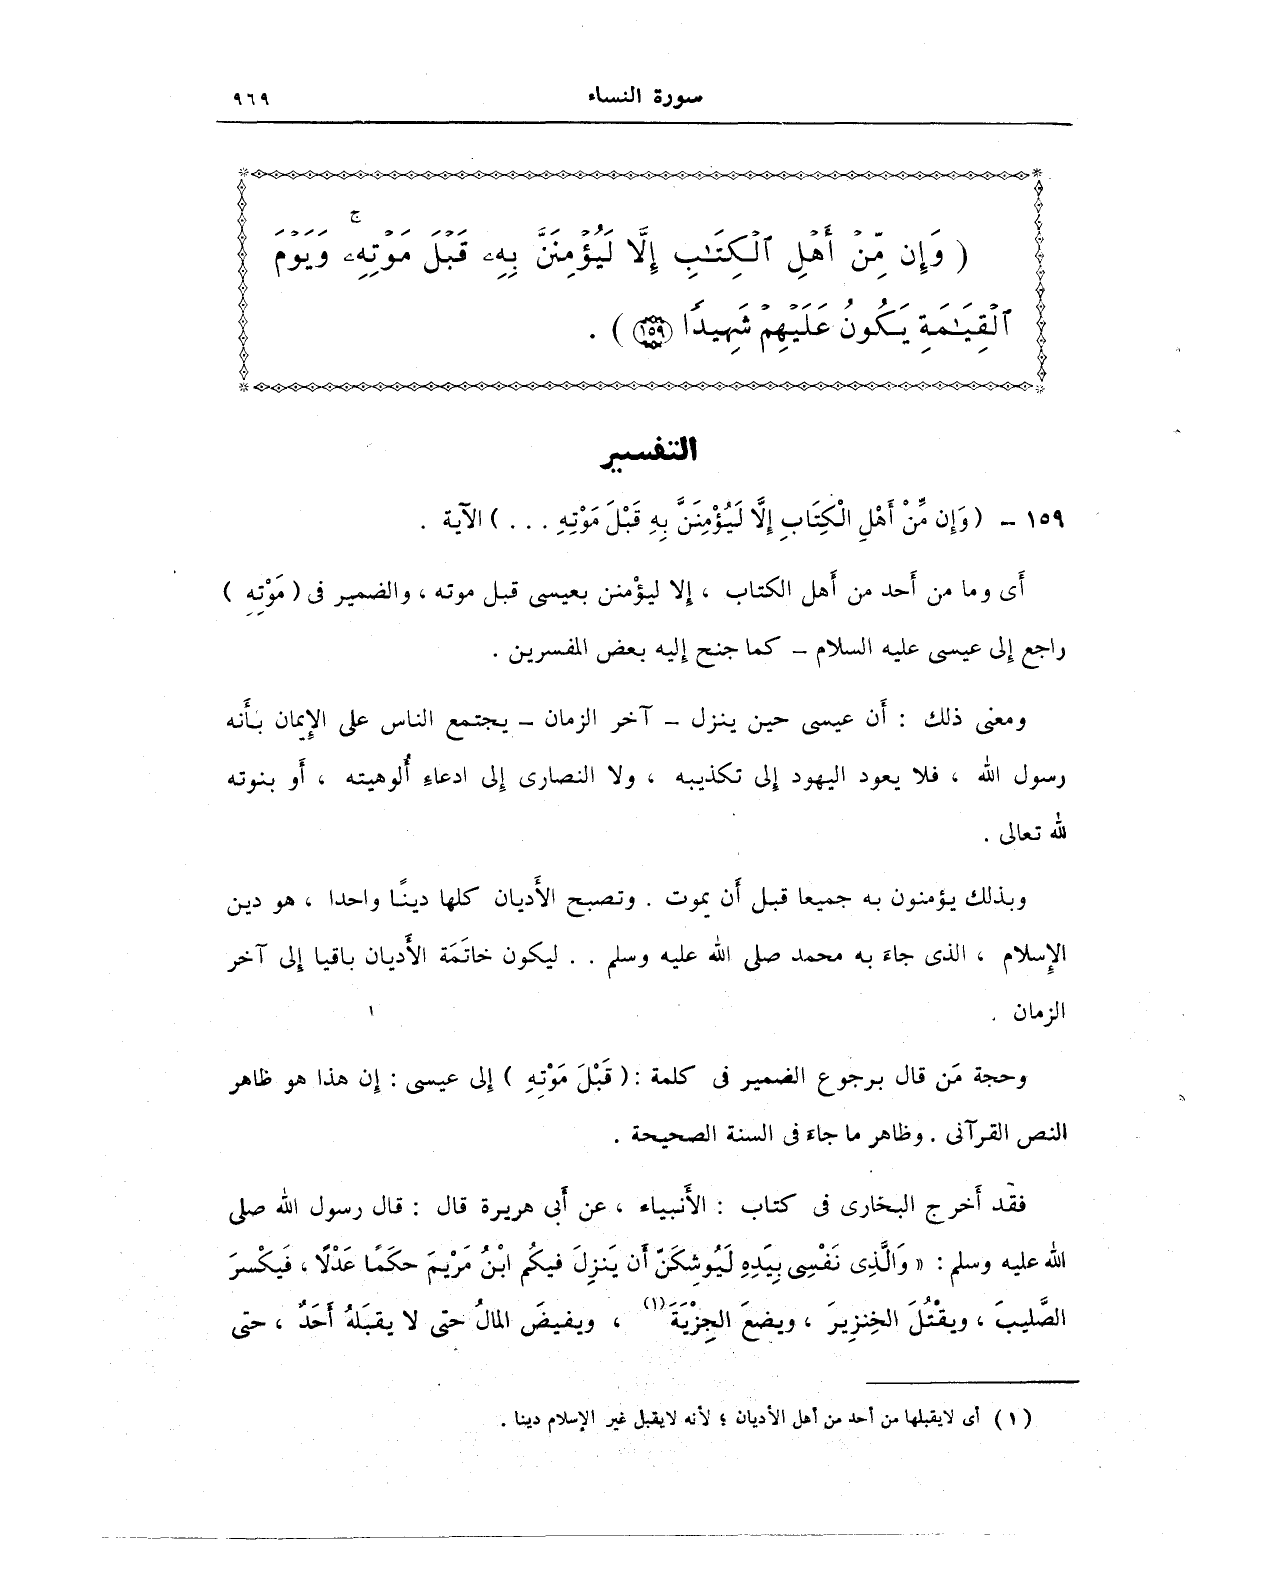 سورة النساء ٩٦٩
( وَإِن مِّنْ أَهْلِ ٱلْكِتَـٰبِ إِلَّا لَيُؤْمِنَنَّ بِهِۦ قَبْلَ مَوْتِهِۦ ۖ وَيَوْمَ
ٱلْقِيَـٰمَةِ يَكُونُ عَلَيْهِمْ شَهِيدًا ١٥٩ ) .
التفسير
١٥٩ – (وَإِن مِّنْ أَهْلِ الْكِتَابِ إِلَّا لَيُؤْمِنَنَّ بِهِ قَبْلَ مَوْتِهِ . . . ) الآية .
أى وما من أحد من أهل الكتاب ، إلا ليؤمنن بعيسى قبل موته ، والضمير فى ( مَوْتِهِ )
راجع إلى عيسى عليه السلام – كما جنح إليه بعض المفسرين .
ومعنى ذلك : أن عيسى حين ينزل – آخر الزمان – يجتمع الناس على الإيمان بأنه
رسول الله ، فلا يعود اليهود إلى تكذيبه ، ولا النصارى إلى ادعاء ألوهيته ، أو بنوته
لله تعالى .
وبذلك يؤمنون به جميعا قبل أن يموت . وتصبح الأديان كلها دينًا واحدا ، هو دين
الإسلام ، الذى جاء به محمد صلى الله عليه وسلم . . ليكون خاتَمَة الأديان باقيا إلى آخر
الزمان .
وحجة مَن قال برجوع الضمير فى كلمة : ( قَبْلَ مَوْتِهِ ) إلى عيسى : إن هذا هو ظاهر
النص القرآنى . وظاهر ما جاء فى السنة الصحيحة .
فقد أخرج البخارى فى كتاب : الأنبياء ، عن أبى هريرة قال : قال رسول الله صلى
الله عليه وسلم : « وَالَّذِى نَفْسِى بِيَدِهِ لَيُوشِكَنّ أن يَنزِلَ فيكُم ابْنُ مَرْيمَ حكَمًا عَدْلًا ، فَيكْسرَ
الصَّليبَ ، ويقْتُلَ الخِنزِيرَ ، ويضعَ الجِزْيَةَ (١) ، ويفيضَ المالُ حتى لا يقبَلهُ أحَدٌ ، حتى
( ١ ) أى لايقبلها من أحد من أهل الأديان ؛ لأنه لايقبل غير الإسلام دينا .